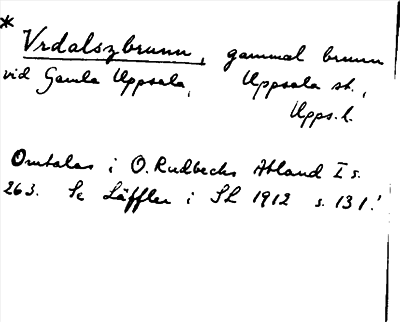 *
Vrdalszbrunn, gammal brunn
vid Gamla Uppsala, Uppsala sn.,
Upps. l.
Omtalas i O. Rudbecks Atland I s.
263. Se Läffler i SL 1912 s. 131.